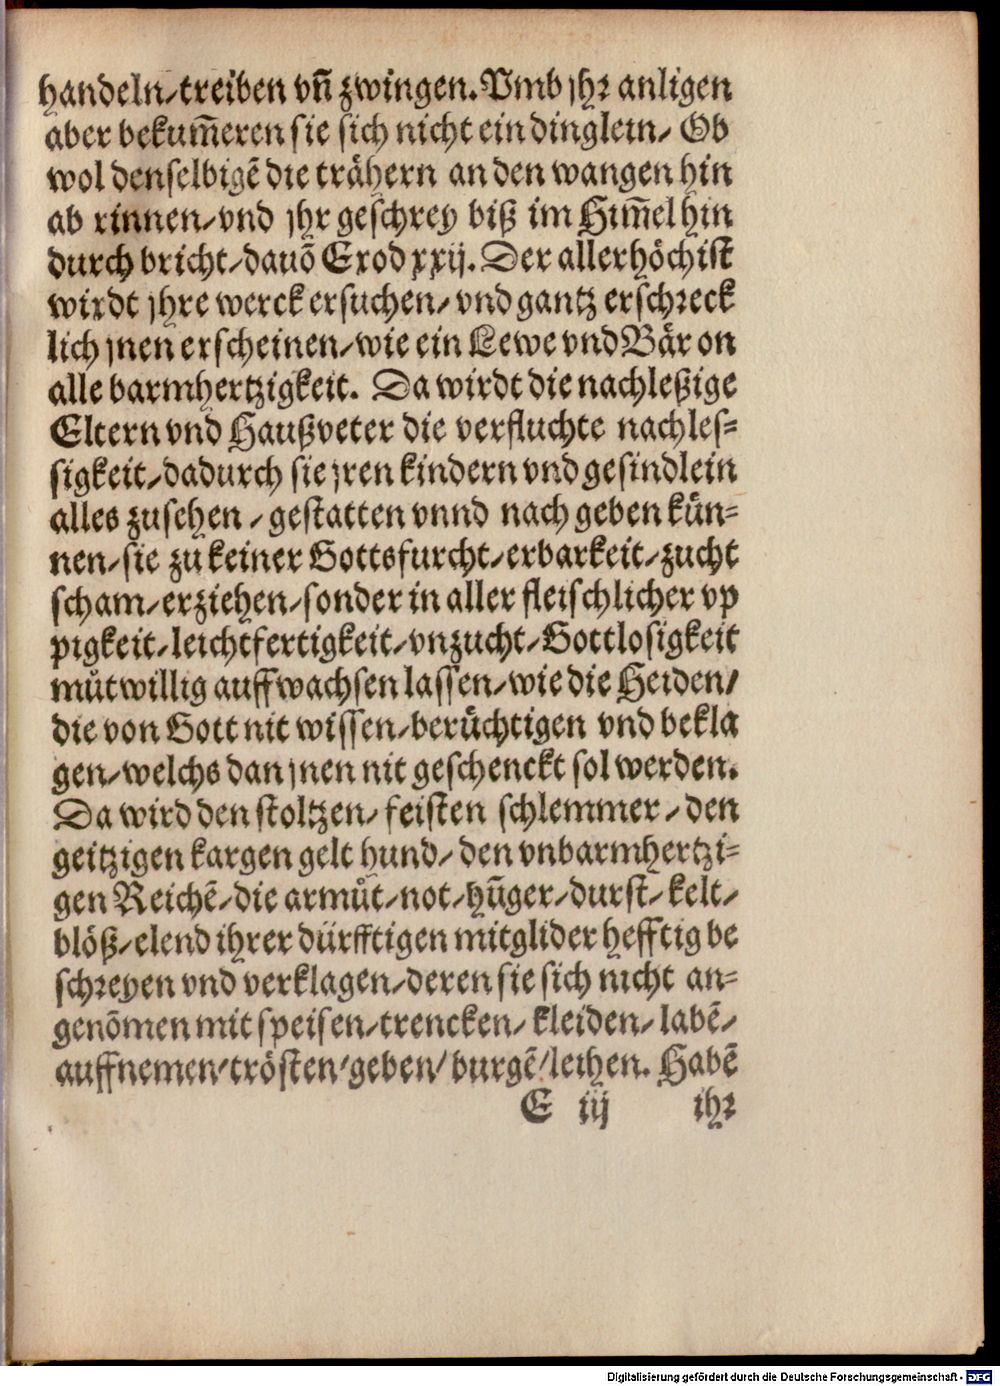 handeln/treiben vñ zwingen. Vmb jhr anligen
aber bekum̄eren sie sich nicht ein dinglein/ Ob
wol denselbigē die trähern an den wangen hin
ab rinnen/vnd jhr geschrey biß im Him̄el hin
durch bricht/dauō Exod xxij. Der allerhöchist
wirdt jhre werck ersuchen/ vnd gantz erschreck
lich jnen erscheinen/wie ein Lewe vnd Bär on
alle barmhertzigkeit. Da wirdt die nachleßige
Eltern vnd Haußveter die verfluchte nachles⸗
sigkeit/dadurch sie jren kindern vnd gesindlein
alles zusehen / gestatten vnnd nach geben kün⸗
nen/sie zu keiner Gottsfurcht/erbarkeit/zucht
scham/erziehen/sonder in aller fleischlicher vp
pigkeit/leichtfertigkeit/vnzucht/Gottlosigkeit
můtwillig auffwachsen lassen/wie die Heiden/
die von Gott nit wissen/berüchtigen vnd bekla
gen/welchs dan jnen nit geschenckt sol werden.
Da wird den stoltzen/ feisten schlemmer / den
geitzigen kargen gelt hund/ den vnbarmhertzi⸗
gen Reichē/die armůt/not/hūger/durst/ kelt/
blöß/elend ihrer dürfftigen mitglider hefftig be
schreyen vnd verklagen/deren sie sich nicht an⸗
genōmen mit speisen/trencken/ kleiden/ labē/
auffnemen/trösten/geben/ burgē/leihen. Habē
E iij ihr
Digitalisierung gefördert durch die Deutsche Forschungsgemeinschaft - DFG